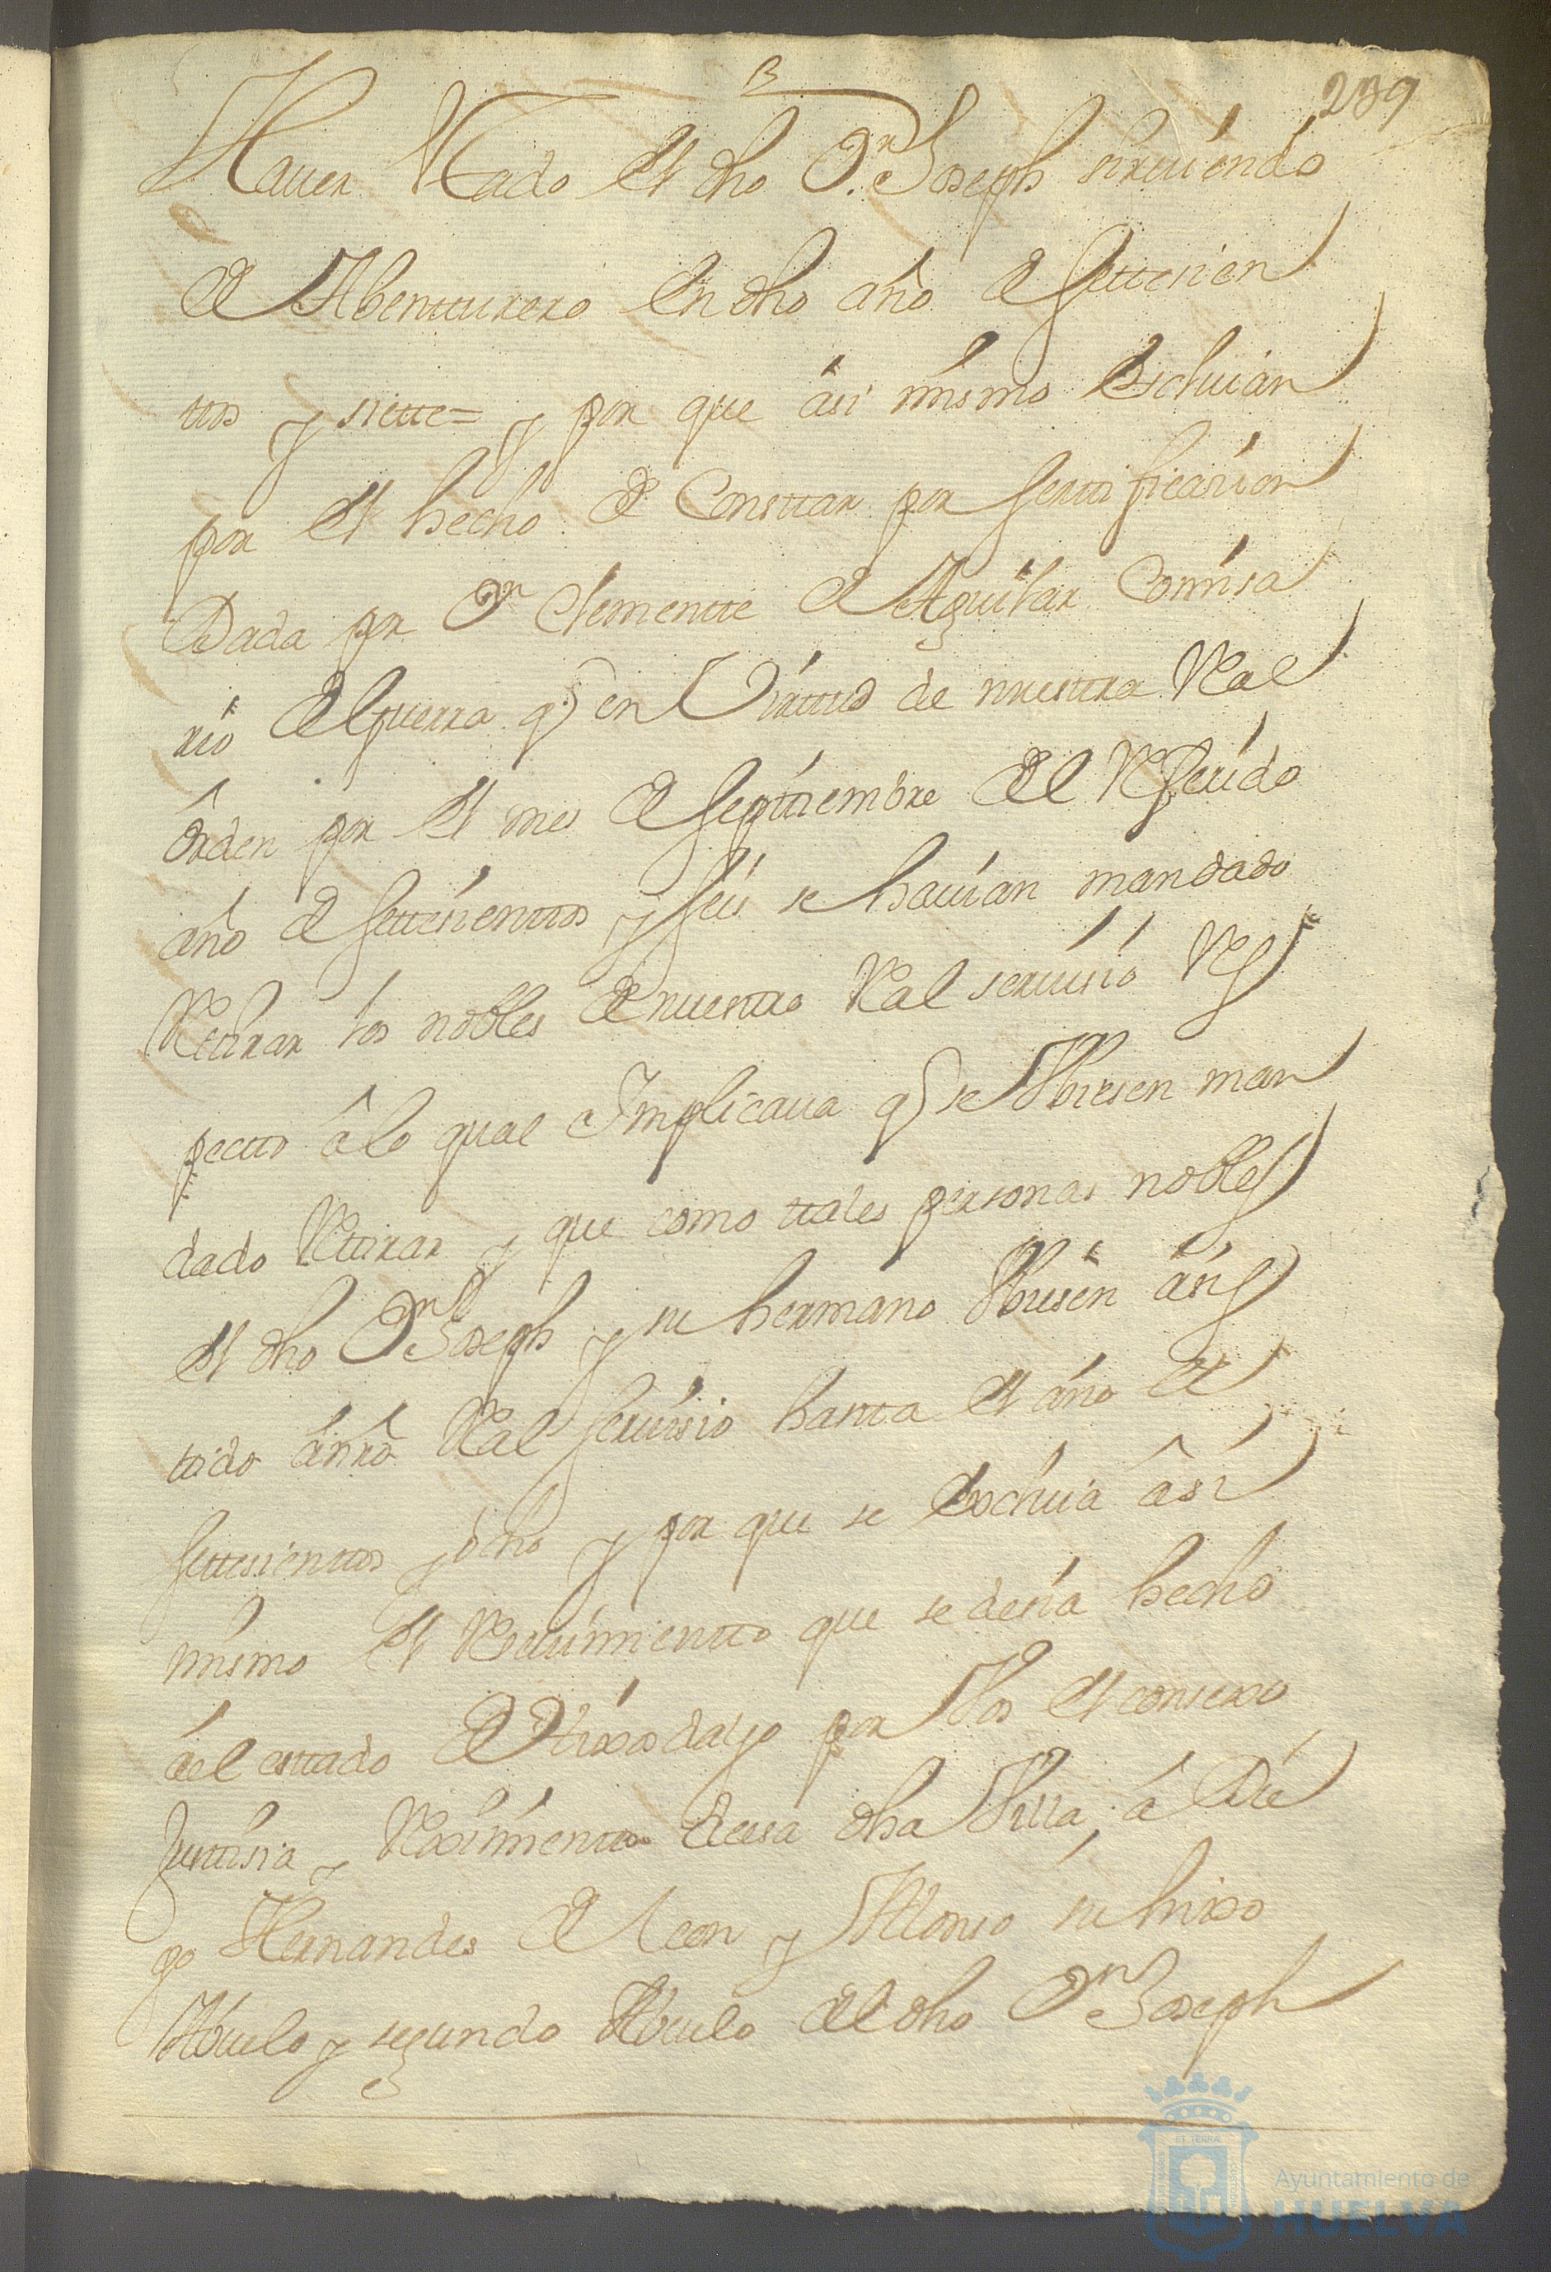 239
Hauer stado el dho Dn Joseph siruiendo
de Abentturero en dho año de settesien
ttos y siette= y por que ásí mismo Excluían
por el hecho de Consttar por serttificasíon
Dada por Dn Clementte de Aguilar Comisa
río de Guerra q en Virttud de nuestra Real
Orden por el mes de septtiembre del Referído
año de settesienttos y seis se hauían mandado
Rettirar los nobles de nuestro Real seruisío Res
pectto â lo qual Implicaua q se Vbiesen man
dado Rettirar y que como ttales personas nobles
el dho Dn Joseph y su hermano Vbiesen ásis
ttido ânro Real seruísio hasta el áno de
settesienttos y ócho y por que se Excluía âsí
mísmo el Reciuímientto que se desía hecho
del esttado de Híxosdalgo por Vos el consexo
Justtisia y Reximíentto de esa dha Villa, â Díe
go Hernandes de Leon y Alonso su hixo
Abuelo y segundo Abuelo del dho Dn Joseph
Ayuntamiento de
HUELVA